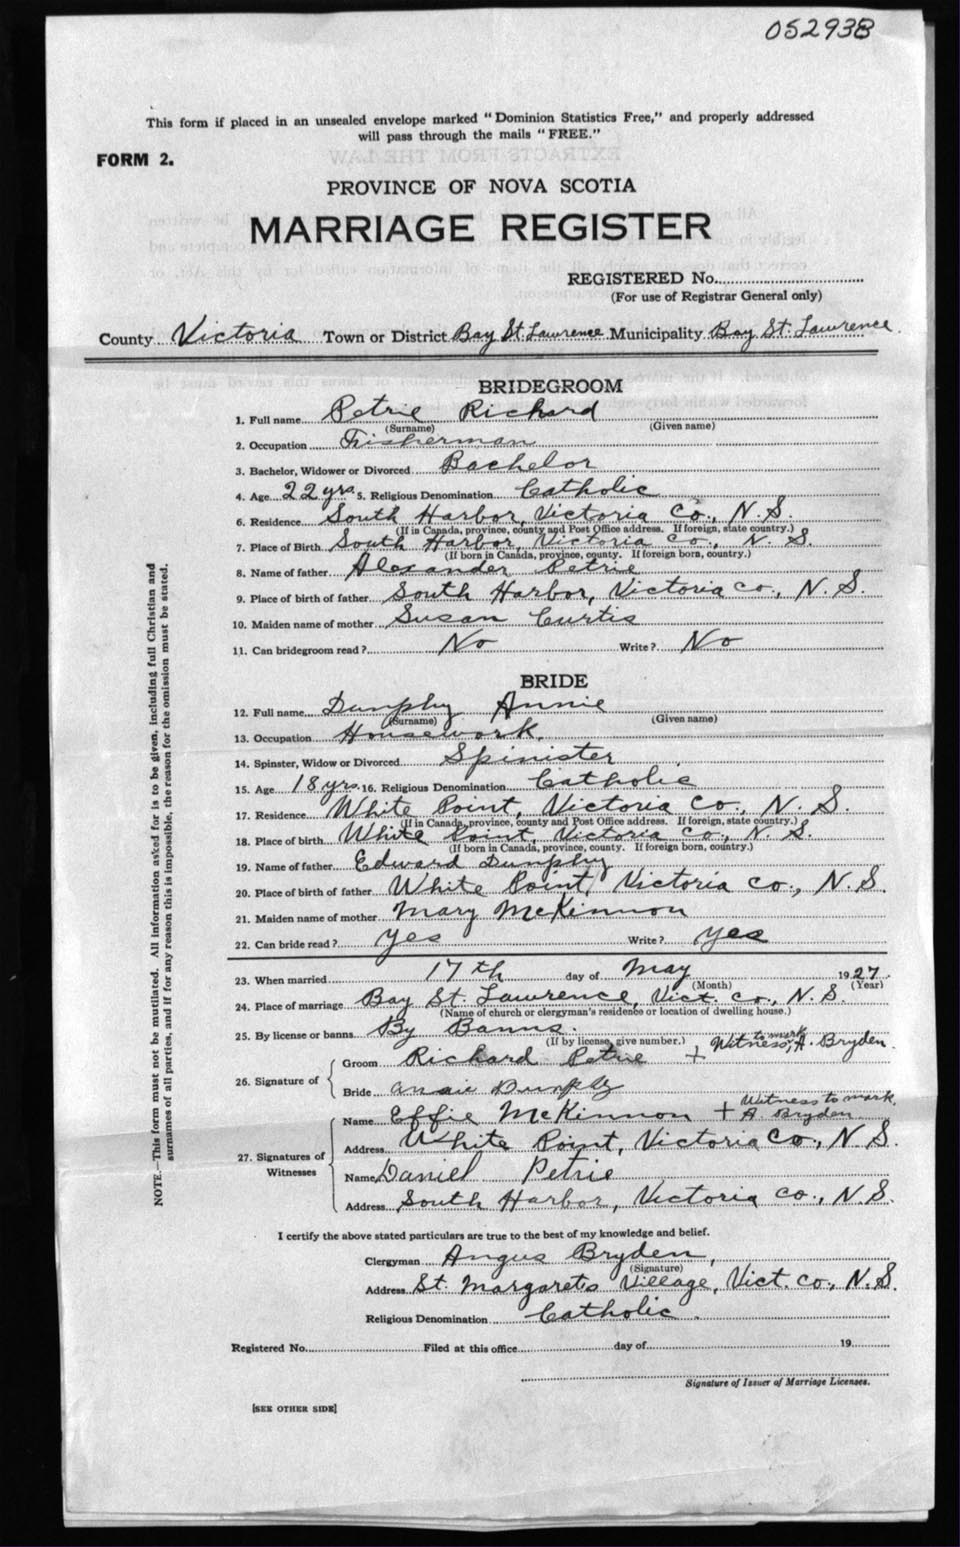 052938
This form if placed in an unsealed envelope marked "Dominion Statistics Free," and properly addressed
will pass through the mails "FREE."
FORM 2.
PROVINCE OF NOVA SCOTIA
MARRIAGE REGISTER
REGISTERED No.
(For use of Registrar General only)
County Victoria Town or District Bay St. Lawrence Municipality Bay St. Lawrence
BRIDEGROOM
1. Full name Petrie Richard
(Surname) (Given name)
2. Occupation Fisherman
3. Bachelor, Widower or Divorced Bachelor
4. Age 22 yrs 5. Religious Denomination Catholic
6. Residence South Harbor, Victoria Co., N.S.
(If in Canada, province, county and Post Office address. If foreign, state country.)
7. Place of Birth South Harbor, Victoria Co., N. S.
(If born in Canada, province, county. If foreign born, country.)
8. Name of father Alexander Petrie
9. Place of birth of father South Harbor, Victoria Co., N. S.
10. Maiden name of mother Susan Curtis
11. Can bridegroom read? No Write? No
BRIDE
12. Full name Dunphy Annie
(Surname) (Given name)
13. Occupation Housework.
14. Spinster, Widow or Divorced Spinister
15. Age 18 yrs. 16. Religious Denomination Catholic
17. Residence White Point, Victoria Co., N. S.
(If in Canada, province, county and Post Office address. If foreign, state country.)
18. Place of birth White Point, Victoria Co., N S.
(If born in Canada, province, county. If foreign born, country.)
19. Name of father Edward Dunphy
20. Place of birth of father White Point, Victoria Co., N. S.
21. Maiden name of mother Mary McKinnon
22. Can bride read? yes Write? yes
23. When married 17th day of May 1927
(Month) (Year)
24. Place of marriage Bay St. Lawrence, Vict. Co., N. S.
(Name of church or clergyman's residence or location of dwelling house.)
25. By license or banns By Banns.
(If by license, give number.)
26. Signature of
Groom Richard Petrie + Witness to mark, A. Bryden.
Bride Annie Dunphy
27. Signatures of Witnesses
Name Effie McKinnon + Witness to mark, A. Bryden
Address White Point, Victoria Co., N. S.
Name Daniel Petrie
Address South Harbor, Victoria Co., N. S.
I certify the above stated particulars are true to the best of my knowledge and belief.
Clergyman Angus Bryden,
(Signature)
Address St. Margarets Village, Vict. Co., N. S.
Religious Denomination Catholic.
Registered No. Filed at this office day of 19
Signature of Issuer of Marriage Licenses.
[SEE OTHER SIDE]
NOTE.—This form must not be mutilated. All information asked for is to be given, including full Christian and
surnames of all parties, and if for any reason this is impossible, the reason for the omission must be stated.